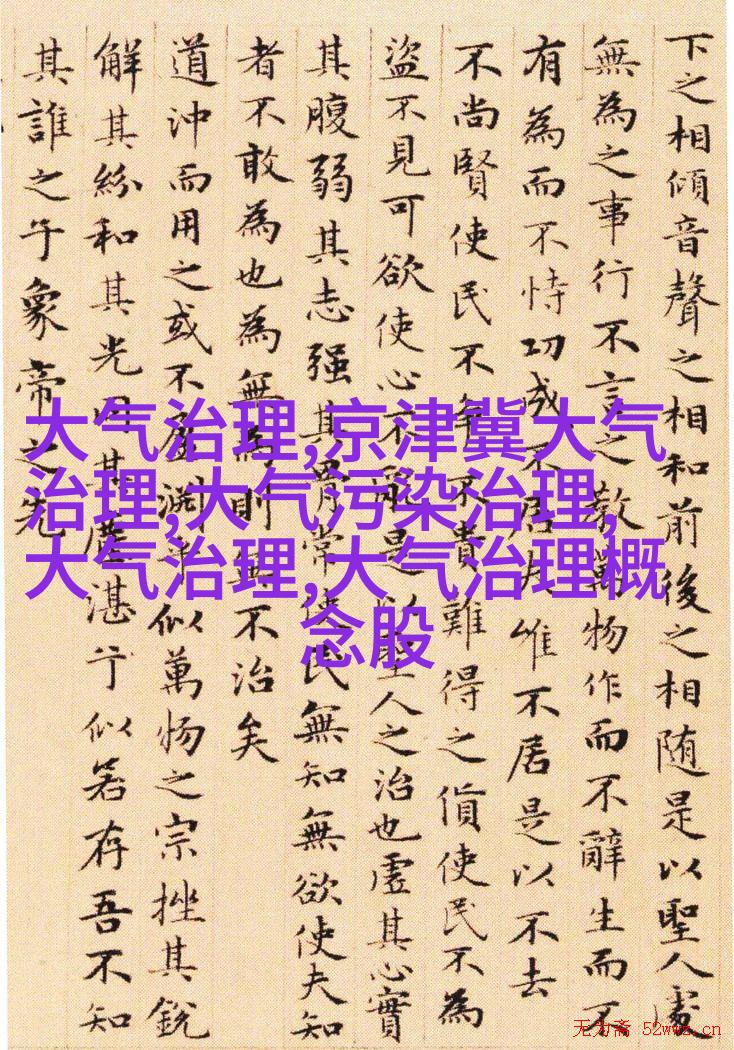 下之相傾音聲之相和前後之相随是以聖人處
無為之事行不言之教萬物作而不辭生而不
有為而不恃功成不居夫唯不居是以不去
不尚賢使民不争不貴難得之貨使民不為
盜不見可欲使心不亂是以聖人之治也虛其心實
其腹弱其志强其骨常使民無知無欲使夫知
者不敢為也為無為則無不治矣
道沖而用之或不盈淵乎似萬物之宗挫其銳
解其紛和其光同其塵湛兮似若存吾不知
其誰之子象帝之先
大气治理,京津冀大气
治理,大气污染治理,
大气治理,大气治理概
念股
无为斋 52wwz.cn